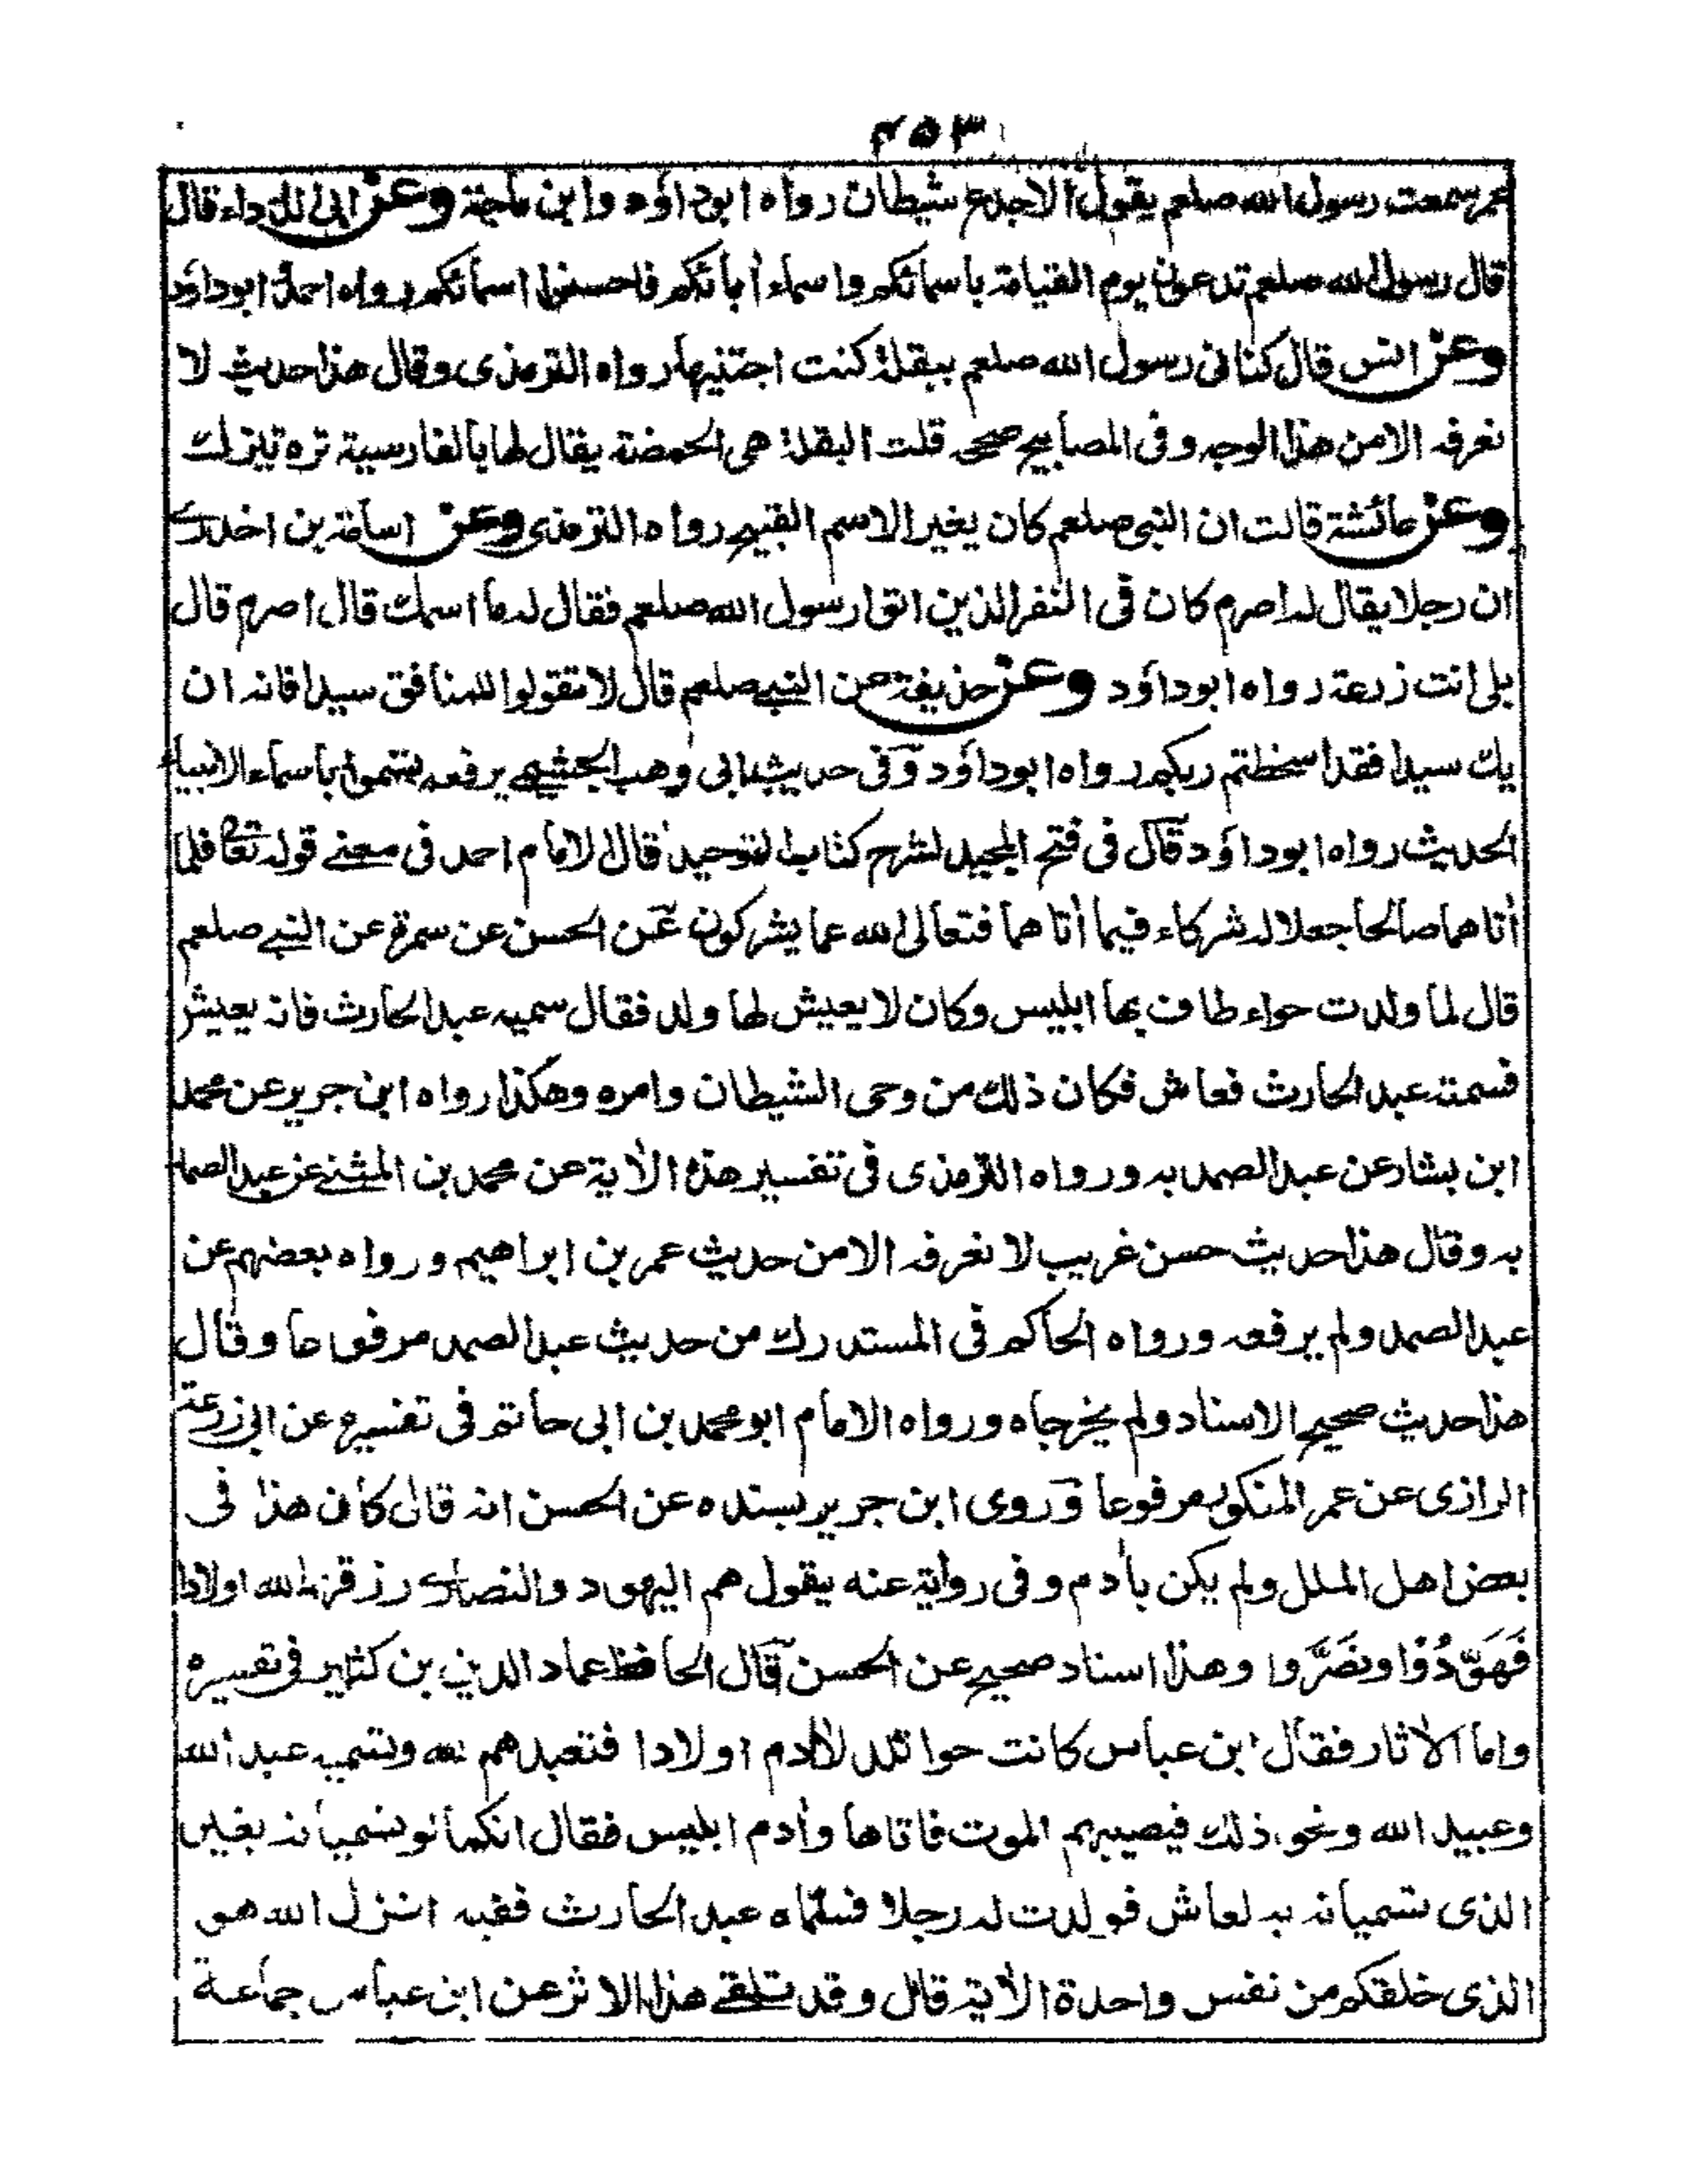 ٤٥٣
عمر سمعت رسول الله صلعم يقول الاجدع شيطان رواه ابوداؤد وابن ماجة وعن ابى الدرداء قال
قال رسول الله صلعم تدعون يوم القيامة باسمائكم واسماء أبائكم فاحسنوا اسمائكم رواه احمد وابوداؤد
وعن انس قال كنانى رسول الله صلعم ببقلة كنت اجتنيها رواه الترمذى وقال هذا حديث لا
نعرفه الامن هذا الوجه وفى المصابيح صححه قلت البقلة هى الحمضة يقال لها بالفارسية تره تيزك
وعن عائشة قالت ان النبى صلعم كان يغير الاسم القبيح رواه الترمذى وعن اسامة بن اخدرى
ان رجلا يقال له اصرم كان فى النفر الذين اتوا رسول الله صلعم فقال له ما اسمك قال اصرم قال
بلى انت زرعة رواه ابوداؤد وعن حذيفة عن النبى صلعم قال لا تقولوا للمنافق سيد افانه ان
يك سيدا فقد اسخطتم ربكم رواه ابوداؤد وفى حديث ابى وهب الجشمى يرفعه تسموا بأسماء الانبياء
الحديث رواه ابوداؤد قال فى فتح المجيد لشرح كتاب التوحيد قال الامام احمد فى معنے قوله تعالى فلما
أتاهما صالحا جعلا له شركاء فيما أتاهما فتعالى الله عما يشركون عن الحسن عن سمرة عن النبى صلعم
قال لما ولدت حواء طاف بها ابليس وكان لا يعيش لها ولد فقال سميه عبد الحارث فانه يعيش
فسمته عبد الحارث فعاش فكان ذلك من وحى الشيطان وامره وهكذا رواه ابن جرير عن محمد
ابن بشار عن عبد الصمد به ورواه الترمذى فى تفسير هذه الأية عن محمد بن المثنے عن عبد الصمد
به وقال هذا حديث حسن غريب لا نعرفه الامن حديث عمر بن ابراهيم ورواه بعضهم عن
عبد الصمد ولم يرفعه ورواه الحاكم فى المستدرك من حديث عبد الصمد مرفوعا وقال
هذا حديث صحيح الاسناد ولم يخرجاه ورواه الامام ابو محمد بن ابى حاتم فى تفسيره عن ابى زرعة
الرازى عن عمر المنكور مرفوعا وروى ابن جرير بسنده عن الحسن انه قال كان هذا فى
بعض اهل الملل ولم يكن بأدم وفى رواية عنه يقول هم اليهود والنصارى رزقهم الله اولادا
فَهَوَّدُوا ونَصَّروا وهذا اسناد صحيح عن الحسن قال الحافظ عماد الدين بن كثير فى تفسيره
واما الأثار فقال ابن عباس كانت حوا تلد لأدم اولادا فتعبدهم لله وتسميه عبد الله
وعبيد الله ونحو ذلك فيصيبهم الموت فاتاها وأدم ابليس فقال انكما لو تسميانه بغير
الذى تسميانه به لعاش فولدت له رجلا فسمّاه عبد الحارث ففيه انزل الله هو
الذى خلقكم من نفس واحدة الأية قال وقد تلقے هذا الاثر عن ابن عباس جماعة